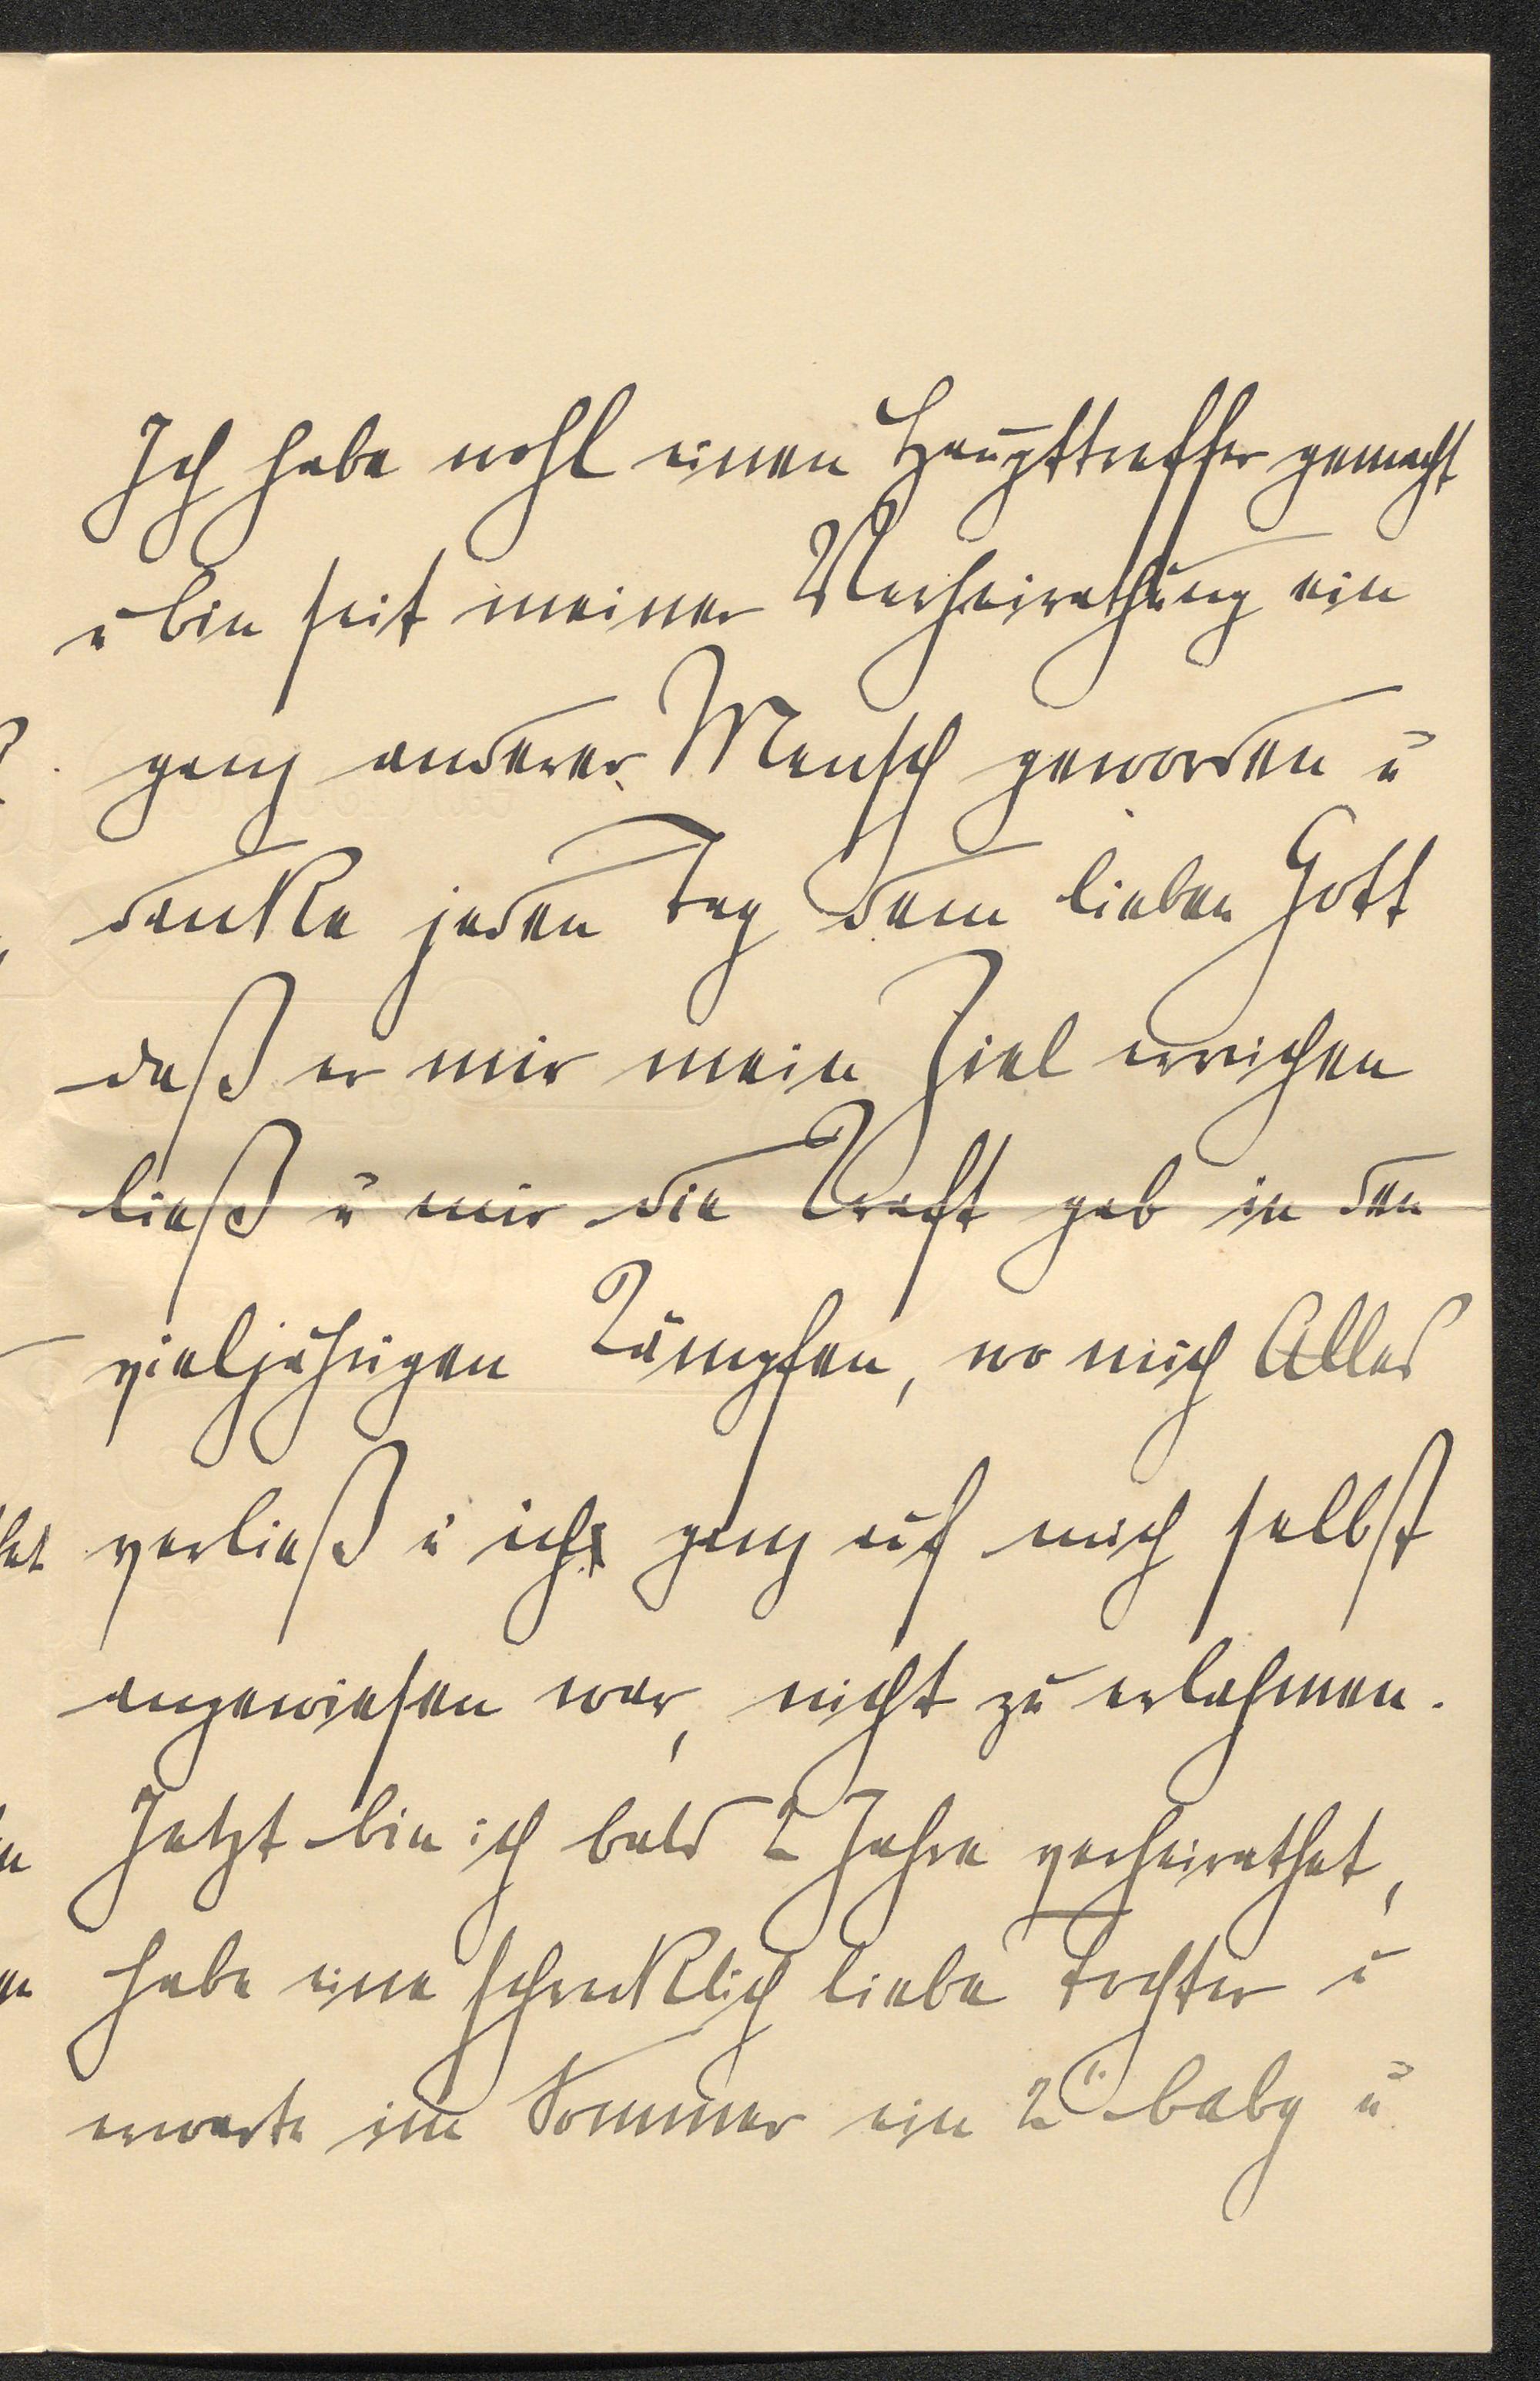 Ich habe wohl einen Haupttreffer gemacht
u bin seit meiner Verheirathung ein
ganz anderer Mensch geworden u
danke jeden Tag dem lieben Gott
daß er mir mein Ziel erreichen
ließ u mir die Kraft gab in den
vieljährigen Kämpfen, wo mich Alles
verließ u ich ganz auf mich selbst
angewiesen war, nicht zu erlahmen.
Jetzt bin ich bald 2 Jahre verheirathet,
habe eine schrecklich liebe Tochter u
erwarte im Sommer ein 2tes baby u